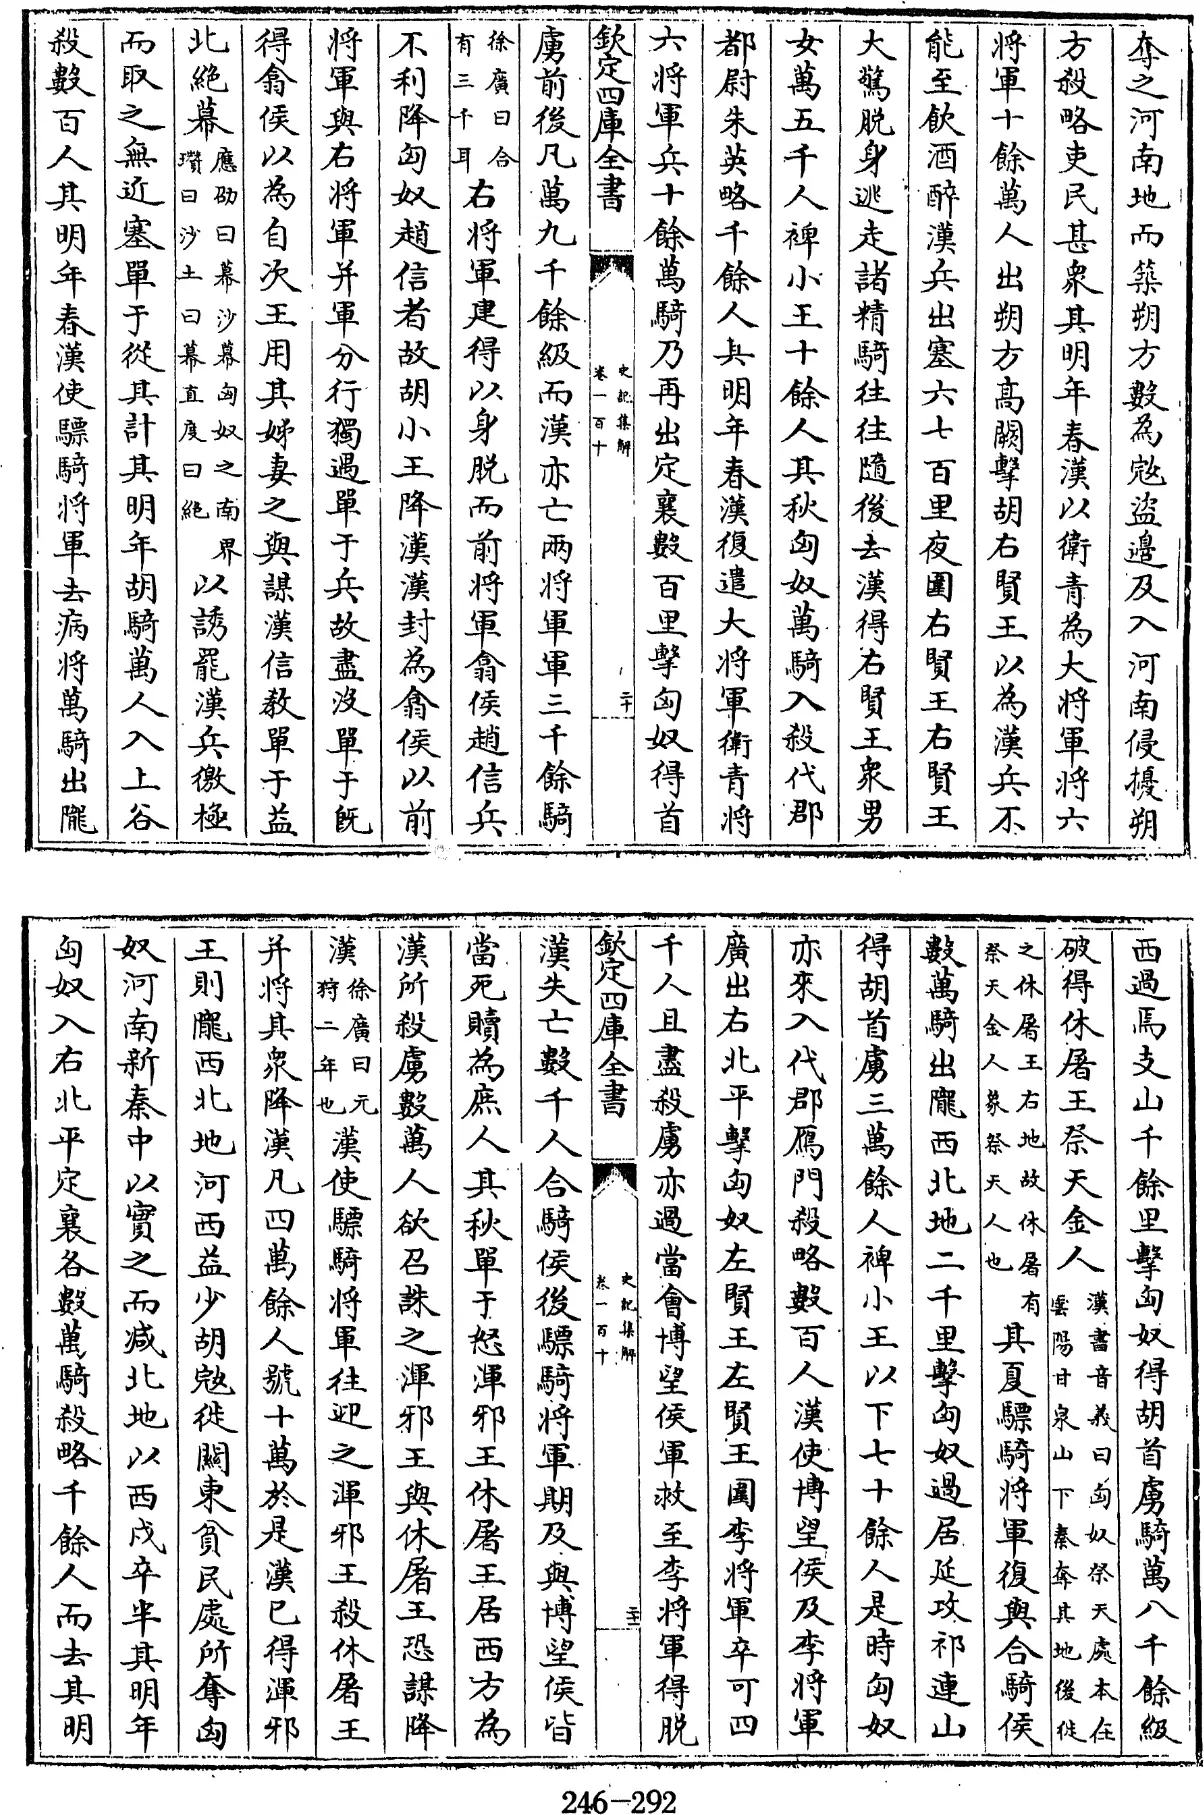 奪之河南地而築朔方數為寇盜邊及入河南侵擾朔
方殺略吏民甚衆其明年春漢以衛青為大將軍將六
將軍十餘萬人出朔方高闕擊胡右賢王以為漢兵不
能至飲酒醉漢兵出塞六七百里夜圍右賢王右賢王
大驚脫身逃走諸精騎往往隨後去漢得右賢王衆男
女萬五千人裨小王十餘人其秋匈奴萬騎入殺代郡
都尉朱英略千餘人其明年春漢復遣大將軍衛青將
六將軍兵十餘萬騎乃再出定襄數百里擊匈奴得首
欽定四庫全書
史記集解
卷一百十
二十
虜前後凡萬九千餘級而漢亦亡兩將軍軍三千餘騎
徐廣曰合
有三千耳
右將軍建得以身脫而前將軍翕侯趙信兵
不利降匈奴趙信者故胡小王降漢漢封為翕侯以前
將軍與右將軍并軍分行獨遇單于兵故盡沒單于既
得翕侯以為自次王用其姊妻之與謀漢信教單于益
北絕幕
應劭曰幕沙幕匈奴之南界
瓚曰沙土曰幕直度曰絕
以誘罷漢兵徼極
而取之無近塞單于從其計其明年胡騎萬人入上谷
殺數百人其明年春漢使驃騎將軍去病將萬騎出隴
西過焉支山千餘里擊匈奴得胡首虜騎萬八千餘級
破得休屠王祭天金人
漢書音義曰匈奴祭天處本在
雲陽甘泉山下秦奪其地後徙
之休屠王右地故休屠有
祭天金人象祭天人也
其夏驃騎將軍復與合騎侯
數萬騎出隴西北地二千里擊匈奴過居延攻祁連山
得胡首虜三萬餘人裨小王以下七十餘人是時匈奴
亦來入代郡鴈門殺略數百人漢使博望侯及李將軍
廣出右北平擊匈奴左賢王左賢王圍李將軍卒可四
千人且盡殺虜亦過當會博望侯軍救至李將軍得脫
欽定四庫全書
史記集解
卷一百十
二十一
漢失亡數千人合騎侯後驃騎將軍期及與博望侯皆
當死贖為庶人其秋單于怒渾邪王休屠王居西方為
漢所殺虜數萬人欲召誅之渾邪王與休屠王恐謀降
漢
徐廣曰元
狩二年也
漢使驃騎將軍往迎之渾邪王殺休屠王
并將其衆降漢凡四萬餘人號十萬於是漢已得渾邪
王則隴西北地河西益少胡寇徙關東貧民處所奪匈
奴河南新秦中以實之而減北地以西戍卒半其明年
匈奴入右北平定襄各數萬騎殺略千餘人而去其明
246-292